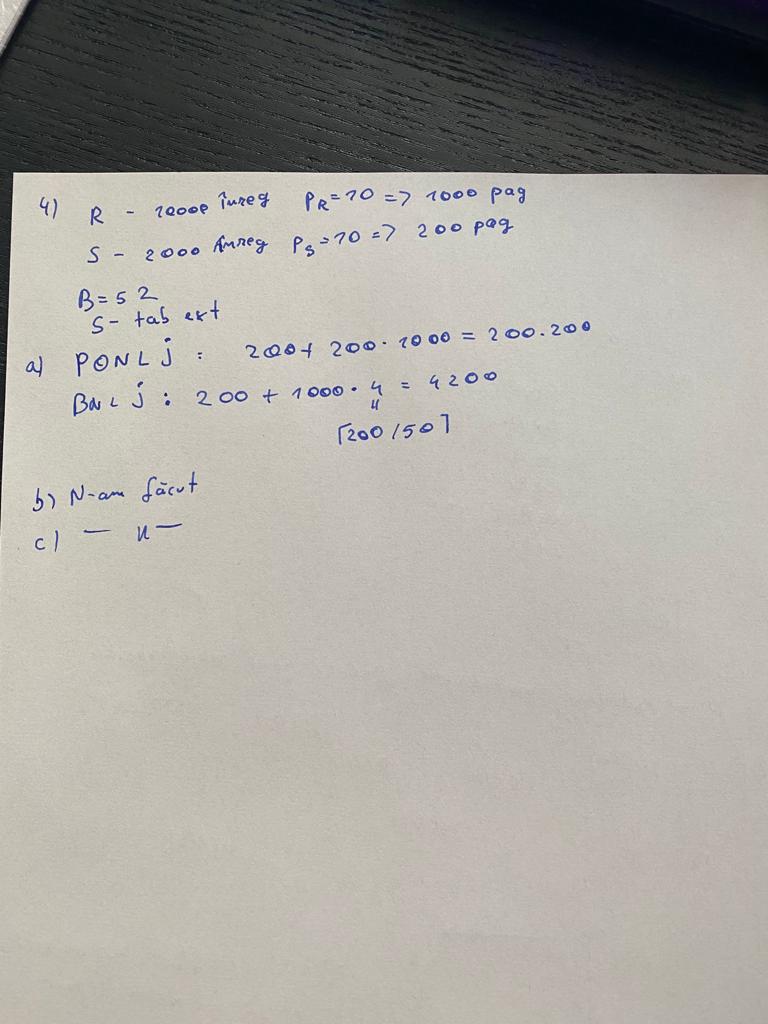 4) R - 10000 înreg PR=10 => 1000 pag
S - 2000 înreg PS=10 => 200 pag
B=52
S- tab ext
a) PONLj : 200+ 200·1000 = 200.200
BNLj : 200 + 1000·4 = 4200
"
⌈200/50⌉
b) N-am făcut
c) — " —